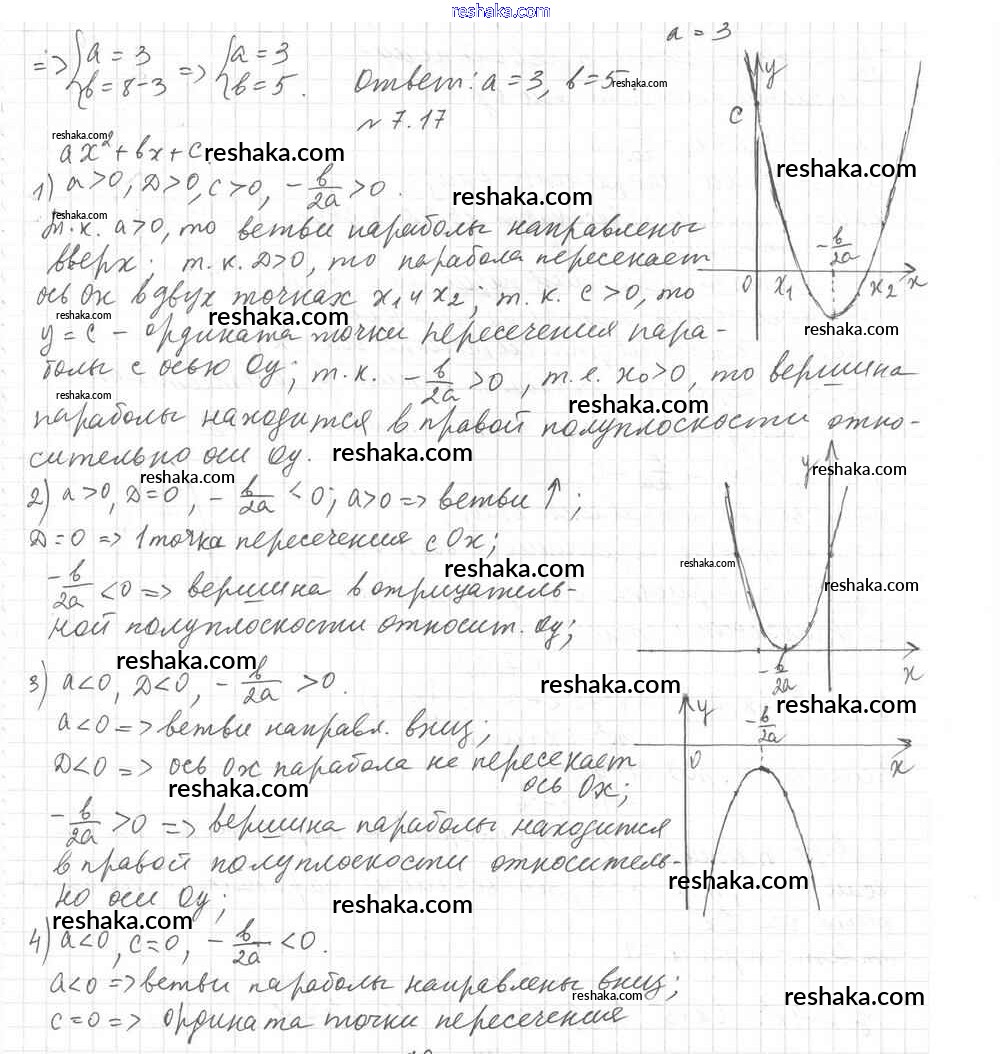 reshaka.com
=> {a = 3 {b = 8-3 => {a = 3 {b = 5 . Ответ: a = 3, b = 5. reshaka.com
a = 3
№ 7.17
reshaka.com
ax² + bx + c reshaka.com
1) a>0, D>0, c>0, -b/2a >0. reshaka.com
reshaka.com
Т.к. a>0, то ветви параболы направлены
вверх; т.к. D>0, то парабола пересекает
ось Ox в двух точках x₁ и x₂; т.к. c>0, то
reshaka.com reshaka.com
y = c - ордината точки пересечения пара-
болы с осью Oy; т.к. -b/2a >0, т.е. x₀>0, то вершина
reshaka.com reshaka.com
параболы находится в правой полуплоскости отно-
сительно оси Oy. reshaka.com
y
c
reshaka.com
-b/2a
0 x₁ x₂ x
reshaka.com
reshaka.com
2) a>0, D=0, -b/2a <0; a>0 => ветви ↑;
D=0 => 1 точка пересечения с Ox;
reshaka.com
-b/2a <0 => вершина в отрицатель-
ной полуплоскости относит. Oy;
y reshaka.com
reshaka.com
reshaka.com
-b/2a x
reshaka.com
3) a<0, D<0, -b/2a >0. reshaka.com
a<0 => ветви направл. вниз;
D<0 => ось Ox парабола не пересекает
reshaka.com ось Ox;
-b/2a >0 => вершина параболы находится
в правой полуплоскости относитель-
но оси Oy;
reshaka.com reshaka.com
reshaka.com
y -b/2a
0 x
reshaka.com
4) a<0, c=0, -b/2a <0.
a<0 => ветви параболы направлены вниз;
reshaka.com reshaka.com
c=0 => ордината точки пересечения